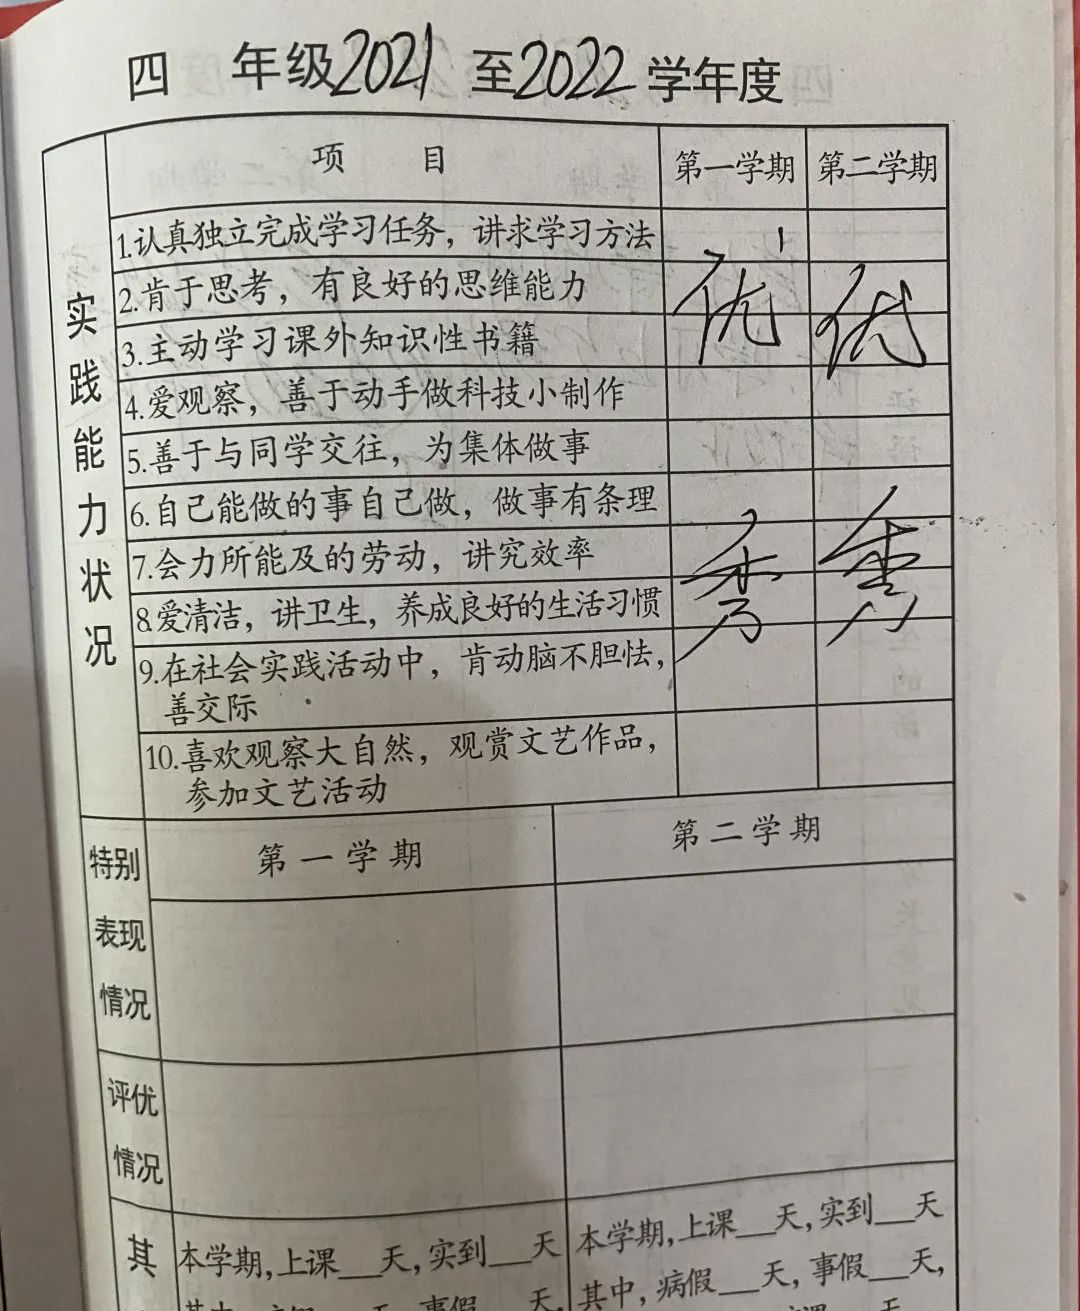 四 年级2021至2022学年度
项 目 第一学期 第二学期
实践能力状况
1.认真独立完成学习任务，讲求学习方法
2.肯于思考，有良好的思维能力
3.主动学习课外知识性书籍
优 优
4.爱观察，善于动手做科技小制作
5.善于与同学交往，为集体做事
6.自己能做的事自己做，做事有条理
7.会力所能及的劳动，讲究效率
秀 秀
8.爱清洁，讲卫生，养成良好的生活习惯
9.在社会实践活动中，肯动脑不胆怯，
善交际
10.喜欢观察大自然，观赏文艺作品，
参加文艺活动
特别
表现
情况
第一学期 第二学期
评优
情况
其
本学期，上课__天，实到__天
本学期，上课__天，实到__天
其中，病假__天，事假__天，
其中，病假__天，事假__天，